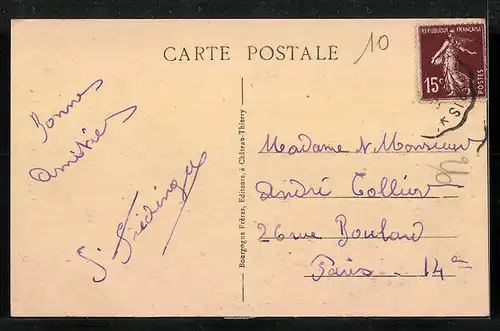 CARTE POSTALE
10
REPUBLIQUE FRANÇAISE
15c
POSTES
Bonnes
amitiés
Bourgogne Frères, Editeurs, à Château-Thierry
Madame & Monsieur
André Collier
26 rue Boulard
Paris - 14e